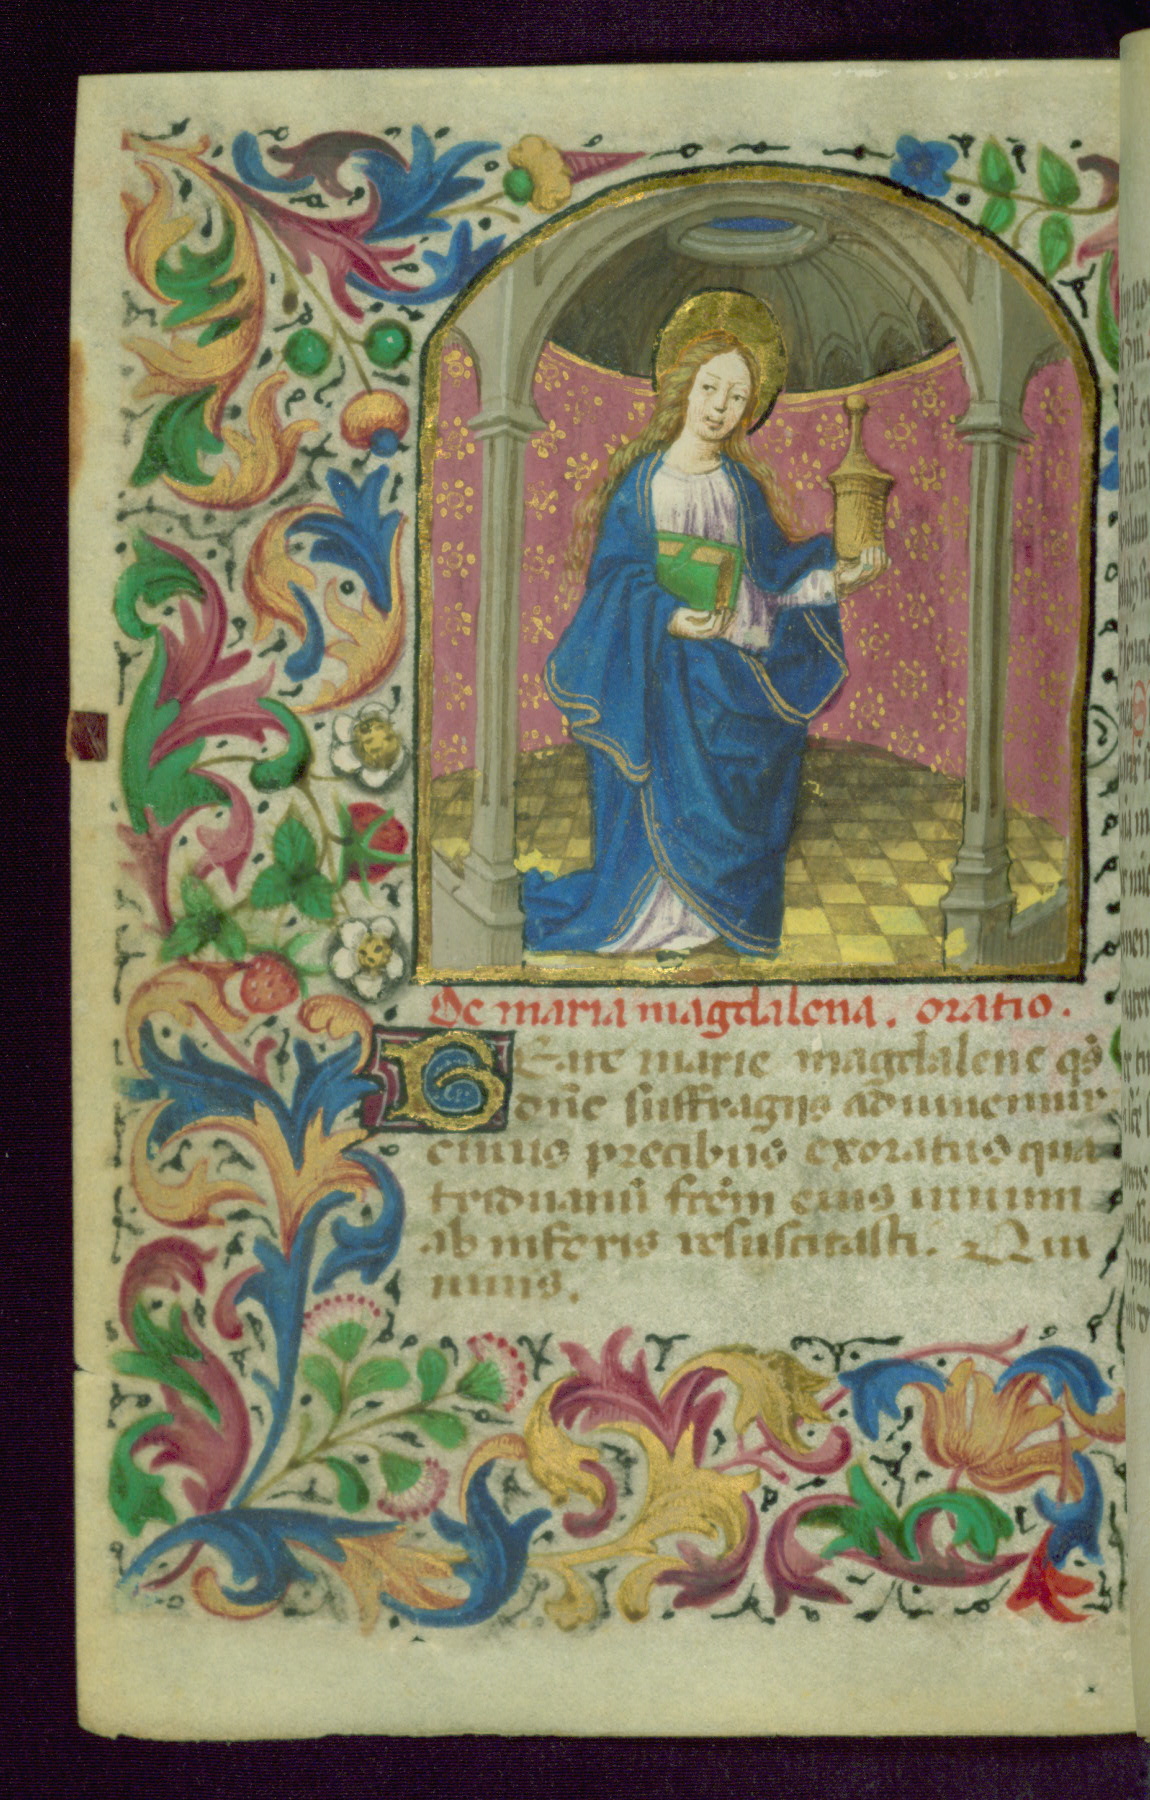 De maria magdalena. oratio.
BEate marie magdalene qs̄
dn̄e suffragiis adiuuemur
cuius precibus exoratus qua
triduanū frēm eius uiuum
ab inferis resuscitasti. Qui
uiuis.